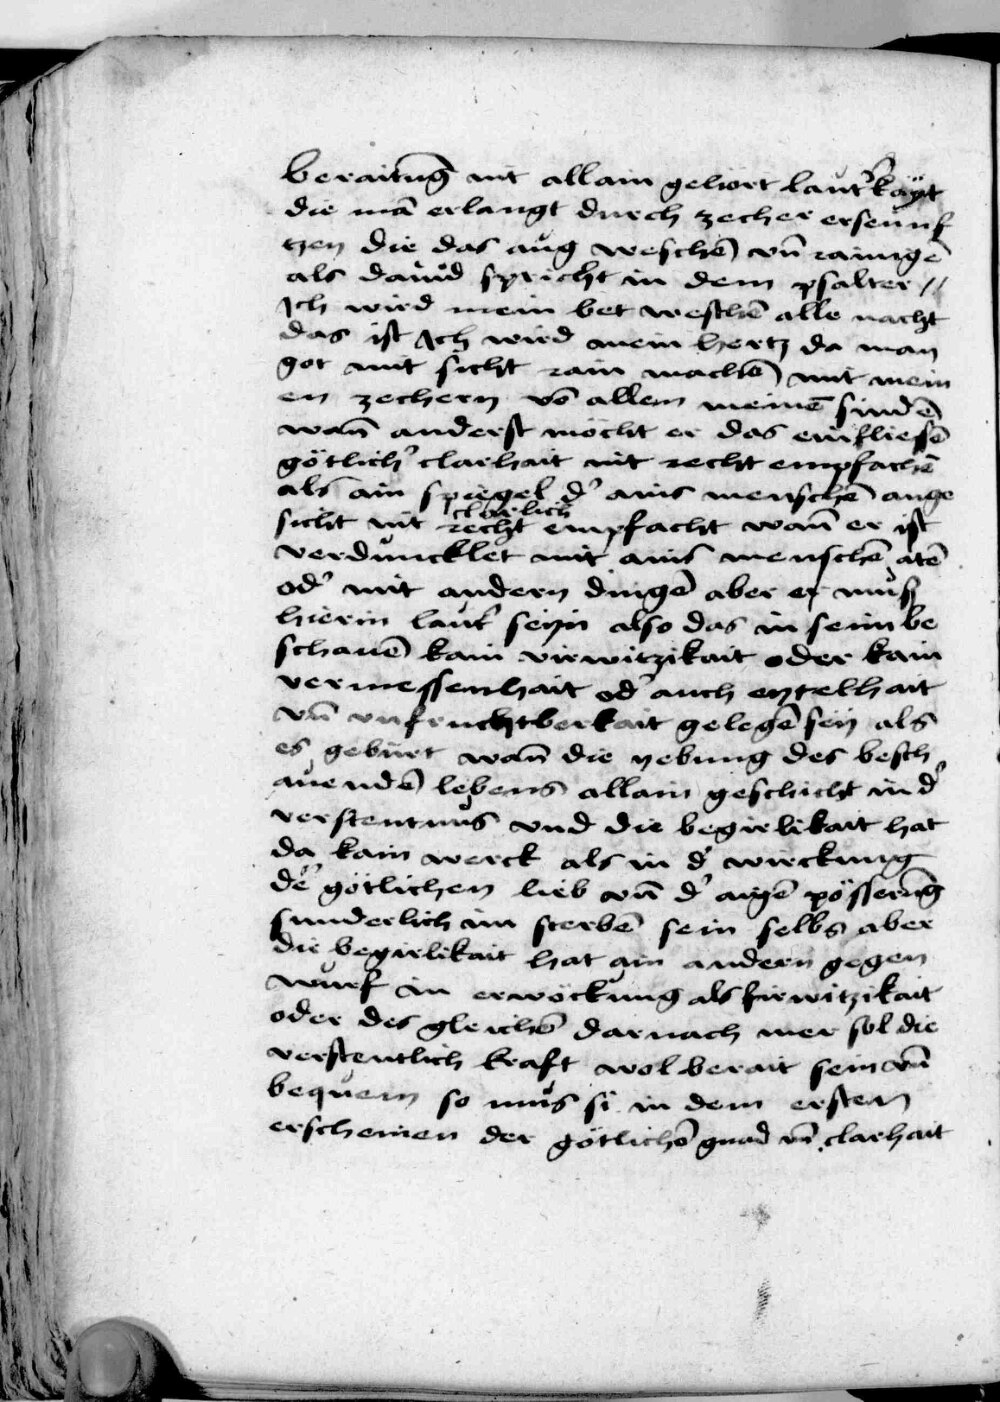 beraitung̃ nit allain gehört laut'kayt
die mā erlangt durch zecher erseunf
tzen die das aug weschē vn̄ rainigē
als dauid spricht in dem psalter //
Ich wird mein bet weschē alle nacht
das ist Ich wird mein hertz da man
got mit sicht rain machē mit mein
en zechern vō allem meinē sindē
wan̄ anderst möcht er das einfliesē
götlich' clarhait nit recht empfachē
als ain spiegel d' ains menschē ange
clarlich
sicht nit recht empfacht wan̄ er ist
verduncklet mit ains menschē atē
od' mit andern dingē aber er muß
hierin laut' seyn also das in seim be
schauē kain virwitzikait oder kain
vermessenhait od' auch eytelhait
vn̄ vnfruchtberkait gelegē sey als
es gebürt wan̄ die yebung des besch
auendē lebens allain geschicht in d'
verstentnus vnd die begirlikait hat
da kain werck als in d' wirckung
de' götlichen lieb vn̄ d' aigē pösserung̃
sunderlich im sterbē sein selbs aber
die begirlikait hat ain andern gegen
wurf in erwöckung als firwitzikait
oder des gleichē darnach mer sol die
verstentlich kraft wol berait sein vn̄
bequem so mus si in dem ersten
erscheinen der götlichē gnad vn̄ clarhait